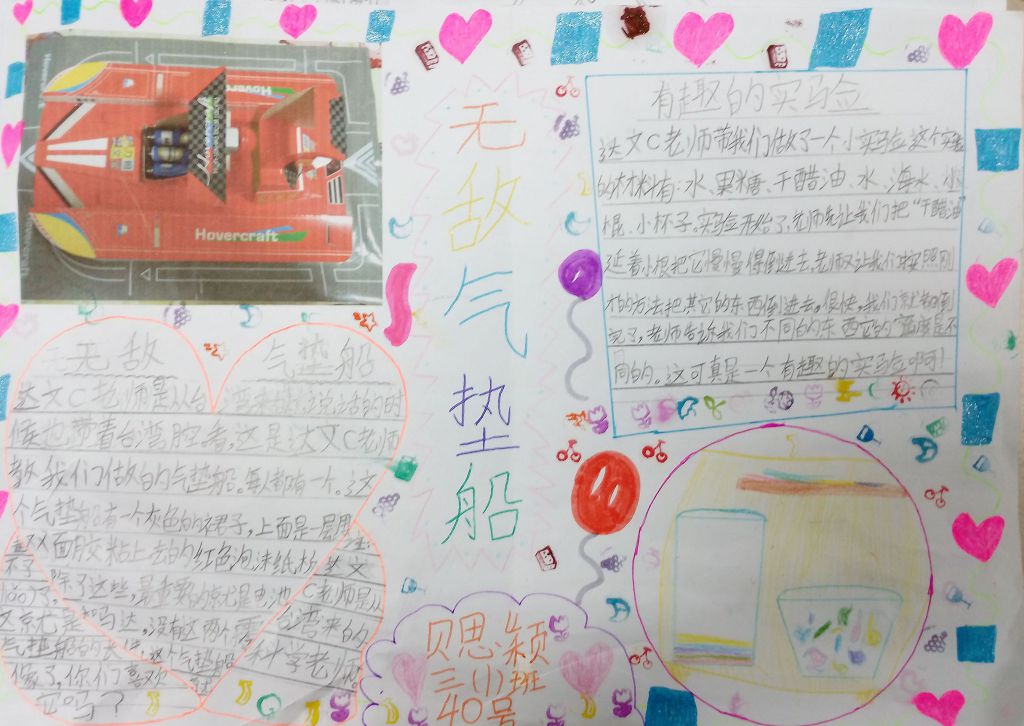 Hovercraft
Hovercraft
Hovercraft
无敌气垫船
有趣的实马佥
达文C老师带我们做了一个小实马佥这个实
的材料有:水、果糖、干醋油、水、海水、小
棍、小杯子。实马佥开始了,老师先让我们把“干醋油”
延着小棍把它慢慢得倒进去,老师又让我们按照刚
才的方法把其它的东西倒进去。很快,我们就都倒
完了,老师告诉我们不同的东西它的密度是不
同的。这可真是一个有趣的实马佥啊!
无敌 气垫船
达文C老师是从台湾来的,说话的时
候也带着台湾腔。这是达文C老师
教我们做的气垫船。每人都有一个。这
个气垫船有一个灰色的裙子,上面是一层用
双面胶粘上去的红色泡沫纸板
除了这些,最重要的就是电池
达文C老师是从台湾来的科学老师。
马达,没有这两个
气垫船的
这个气垫船
你们喜欢
它吗?
贝思颖
三(1)班
40号